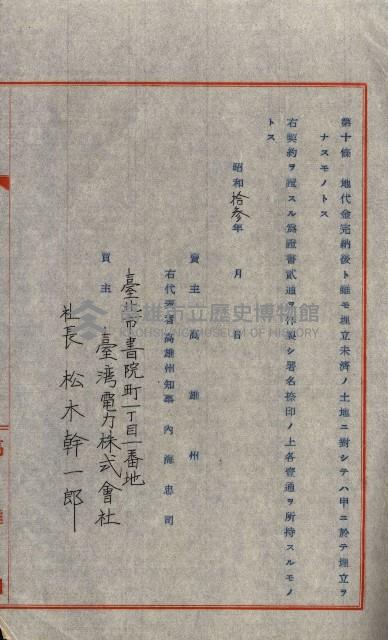 第十條　地代金完納後ト雖モ埋立未濟ノ土地ニ對シテハ甲ニ於テ埋立ヲ
ナスモノトス
右契約ヲ證スル爲證書貳通ヲ作製シ署名捺印ノ上各壹通ヲ所持スルモノ
トス
昭和拾參年　月　日
賣主　高雄州
右代表者高雄州知事　內海忠司
臺北市書院町一丁目一番地
買主　臺灣電力株式會社
社長　松木幹一郎
高雄市立歷史博物館
KAOHSIUNG MUSEUM OF HISTORY